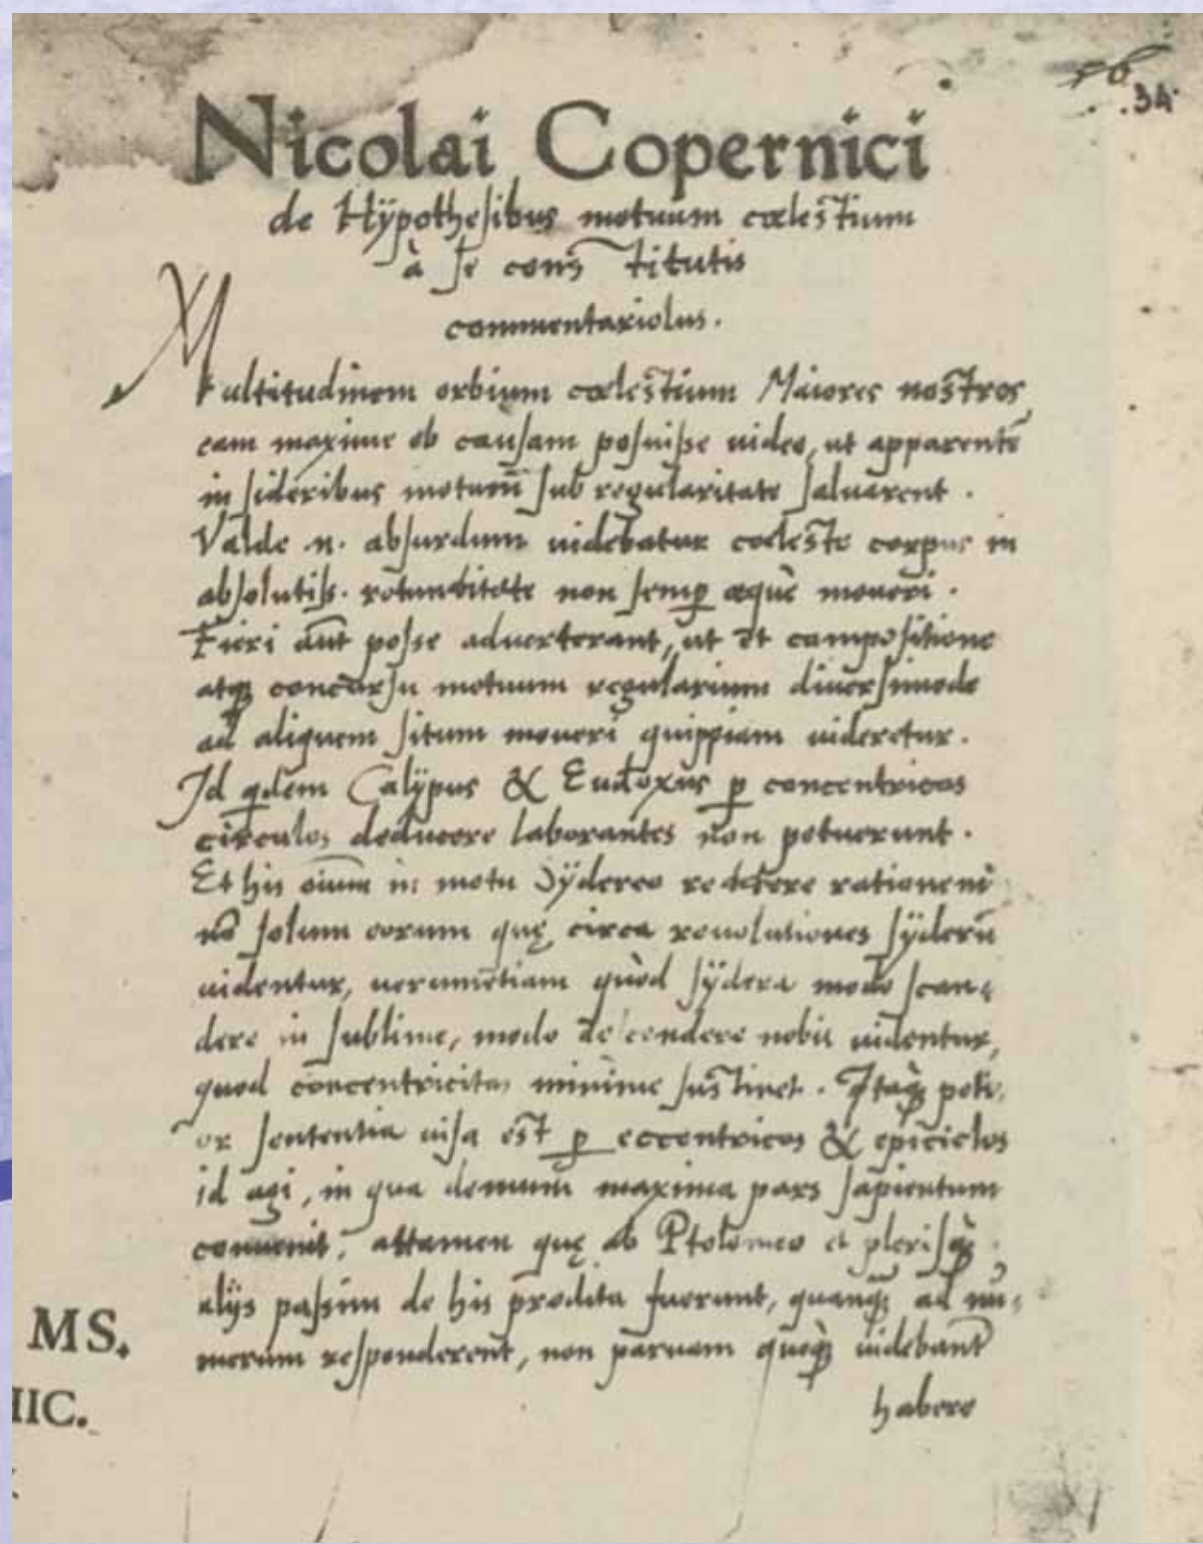 34
Nicolai Copernici
de Hÿpothesibus motuum cœlestium
à se constitutis
commentariolus.
Multitudinem orbium cœlestium Maiores nostros
eam maxime ob causam posuisse uideo, ut apparentē
in sideribus motum̄ sub regularitate saluarent.
Valde .n. absurdum uidebatur cœleste corpus in
absolutiss. rotunditate non semp̱ æquè moueri.
Fieri aūt posse aduerterant, ut et compositione
atqꝫ concursu motuum regularium diuersimode
ad aliquem situm moueri quippiam uideretur.
Id qdem Calÿpus & Eudoxus ꝑ concentricos
circulos deducere laborantes non potuerunt.
Et his oium̄ in motu sÿdereo reddere rationem
nō solum eorum quę circa reuolutiones sÿderū
uidentur, uerumetiam quòd sÿdera modo scan-
dere in sublime, modo descendere nobis uidentur,
quod concentricitas minime sustinet. Itaqꝫ poti-
or sententia uisa est ꝑ eccentricos & epiciclos
id agi, in qua demum maxima pars sapientum
conuenit, attamen quę ab Ptolomeo et plerisqꝫ
alijs passim de his prodita fuerunt, quanqꝫ ad nu-
merum responderent, non paruam quoqꝫ uidebant̄
habere
MS.
IIC.